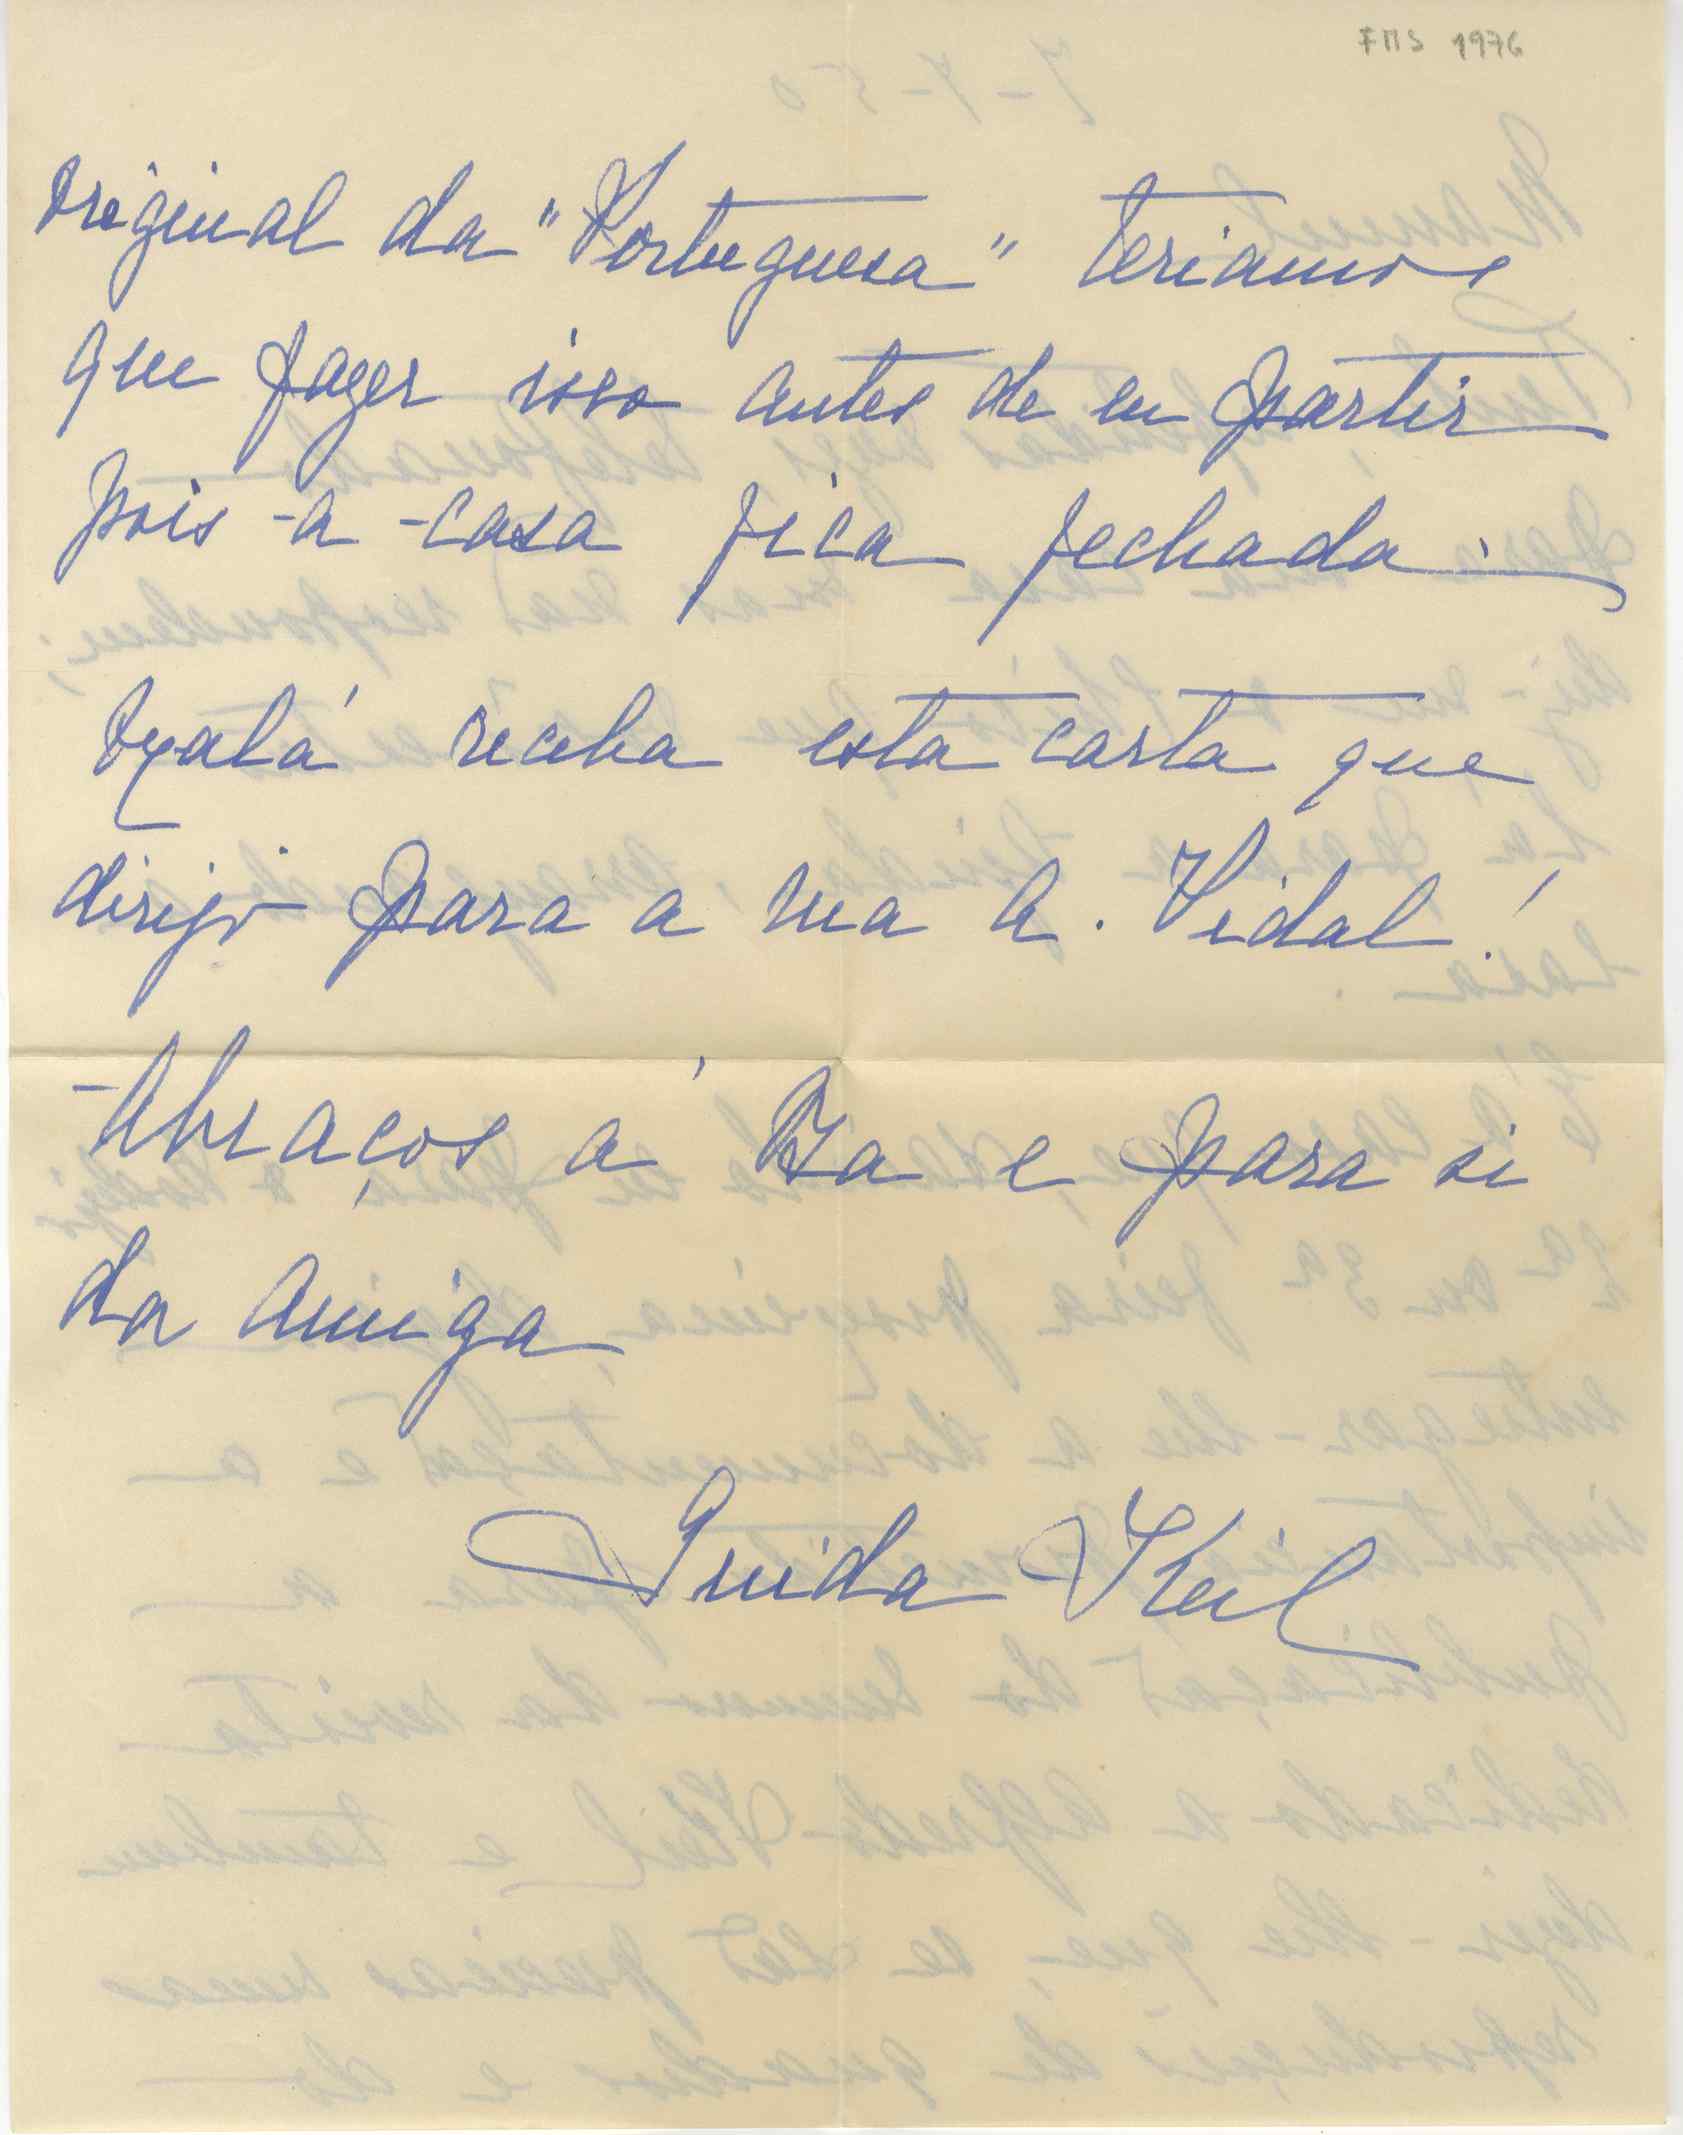 FMS 1976
Original da "Portuguesa" teriamos
que fazer isso antes de eu partir
pois a casa fica fechada.
Oxalá receba esta carta que
dirijo para a rua A. Vidal!
Abraços á Za e para si
da amiga
Guida Keil